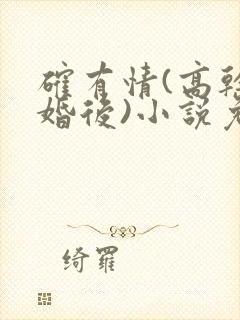 確有情(高幹
婚後)小說免
綺羅